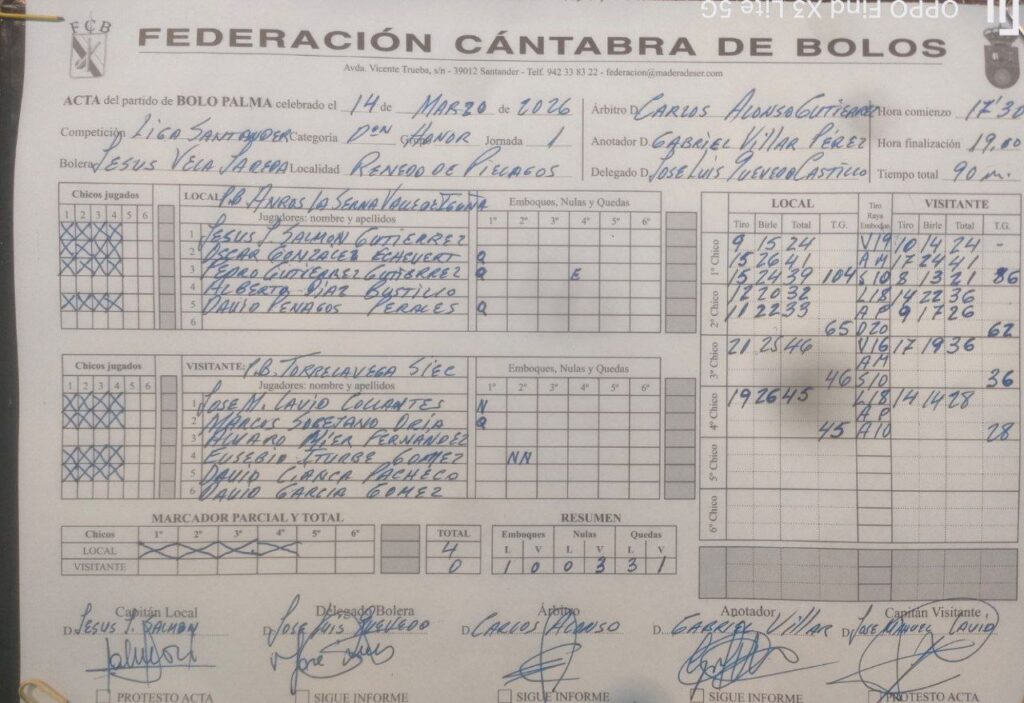 OPPO Find X3 Lite 5G
FCB
FEDERACIÓN CÁNTABRA DE BOLOS
Avda. Vicente Trueba, s/n - 39012 Santander - Telf. 942 33 83 22 - federacion@maderadeser.com
ACTA del partido de BOLO PALMA celebrado el 14 de MARZO de 2026
Competición LIGA SANTANDER Categoría DON HONOR Jornada 1
Bolera JESUS VELA JAREDA Localidad RENEDO DE PIELAGOS
Árbitro D. CARLOS ALONSO GUTIERREZ
Anotador D. GABRIEL VILLAR PÉREZ
Delegado D. JOSE LUIS QUEVEDO CASTILLO
Hora comienzo 17'30
Hora finalización 19,00
Tiempo total 90 m.
Chicos jugados LOCAL P.B. ANROS LA SERNA VALLE DE IGUÑA Emboques, Nulas y Quedas
1 2 3 4 5 6 Jugadores: nombre y apellidos 1º 2º 3º 4º 5º 6º
1 JESUS J. SALMON GUTIERREZ
2 OSCAR GONZALEZ ECHEVERT Q
3 PEDRO GUTIERREZ GUTIERREZ Q E
4 ALBERTO DIAZ BUSTILLO
5 DAVID PENAGOS PERALES Q
6
Chicos jugados VISITANTE: P.B. TORRELAVEGA SIEC Emboques, Nulas y Quedas
1 2 3 4 5 6 Jugadores: nombre y apellidos 1º 2º 3º 4º 5º 6º
1 JOSE M. LAVID COLLANTES N
2 MARCOS SOBEJANO ORIA Q
3 ALVARO MIER FERNANDEZ
4 EUSEBIO ITURBE GOMEZ NN
5 DAVID CIANCA PACHECO
6 DAVID GARCIA GOMEZ
LOCAL Tiro Raya Emboque VISITANTE
Tiro Birle Total T.G. Tiro Birle Total T.G.
1º Chico
9 15 24 V19 10 14 24 -
15 26 41 AM 17 24 41
15 24 39 104 S10 8 13 21 86
2º Chico
12 20 32 L18 14 22 36
11 22 33 AP 9 17 26
65 D20 62
3º Chico
21 25 46 V16 17 19 36
AM
46 S10 36
4º Chico
19 26 45 L18 14 14 28
AP
45 A10 28
5º Chico
6º Chico
MARCADOR PARCIAL Y TOTAL
Chicos 1º 2º 3º 4º 5º 6º TOTAL
LOCAL 4
VISITANTE 0
RESUMEN
Emboques Nulas Quedas
L V L V L V
1 0 0 3 3 1
Capitán Local
D. JESUS J. SALMON
Delegado Bolera
JOSE LUIS QUEVEDO
Árbitro
D. CARLOS ALONSO
Anotador
D. GABRIEL VILLAR
Capitán Visitante
D. JOSE MANUEL LAVID
PROTESTO ACTA
SIGUE INFORME
SIGUE INFORME
SIGUE INFORME
PROTESTO ACTA